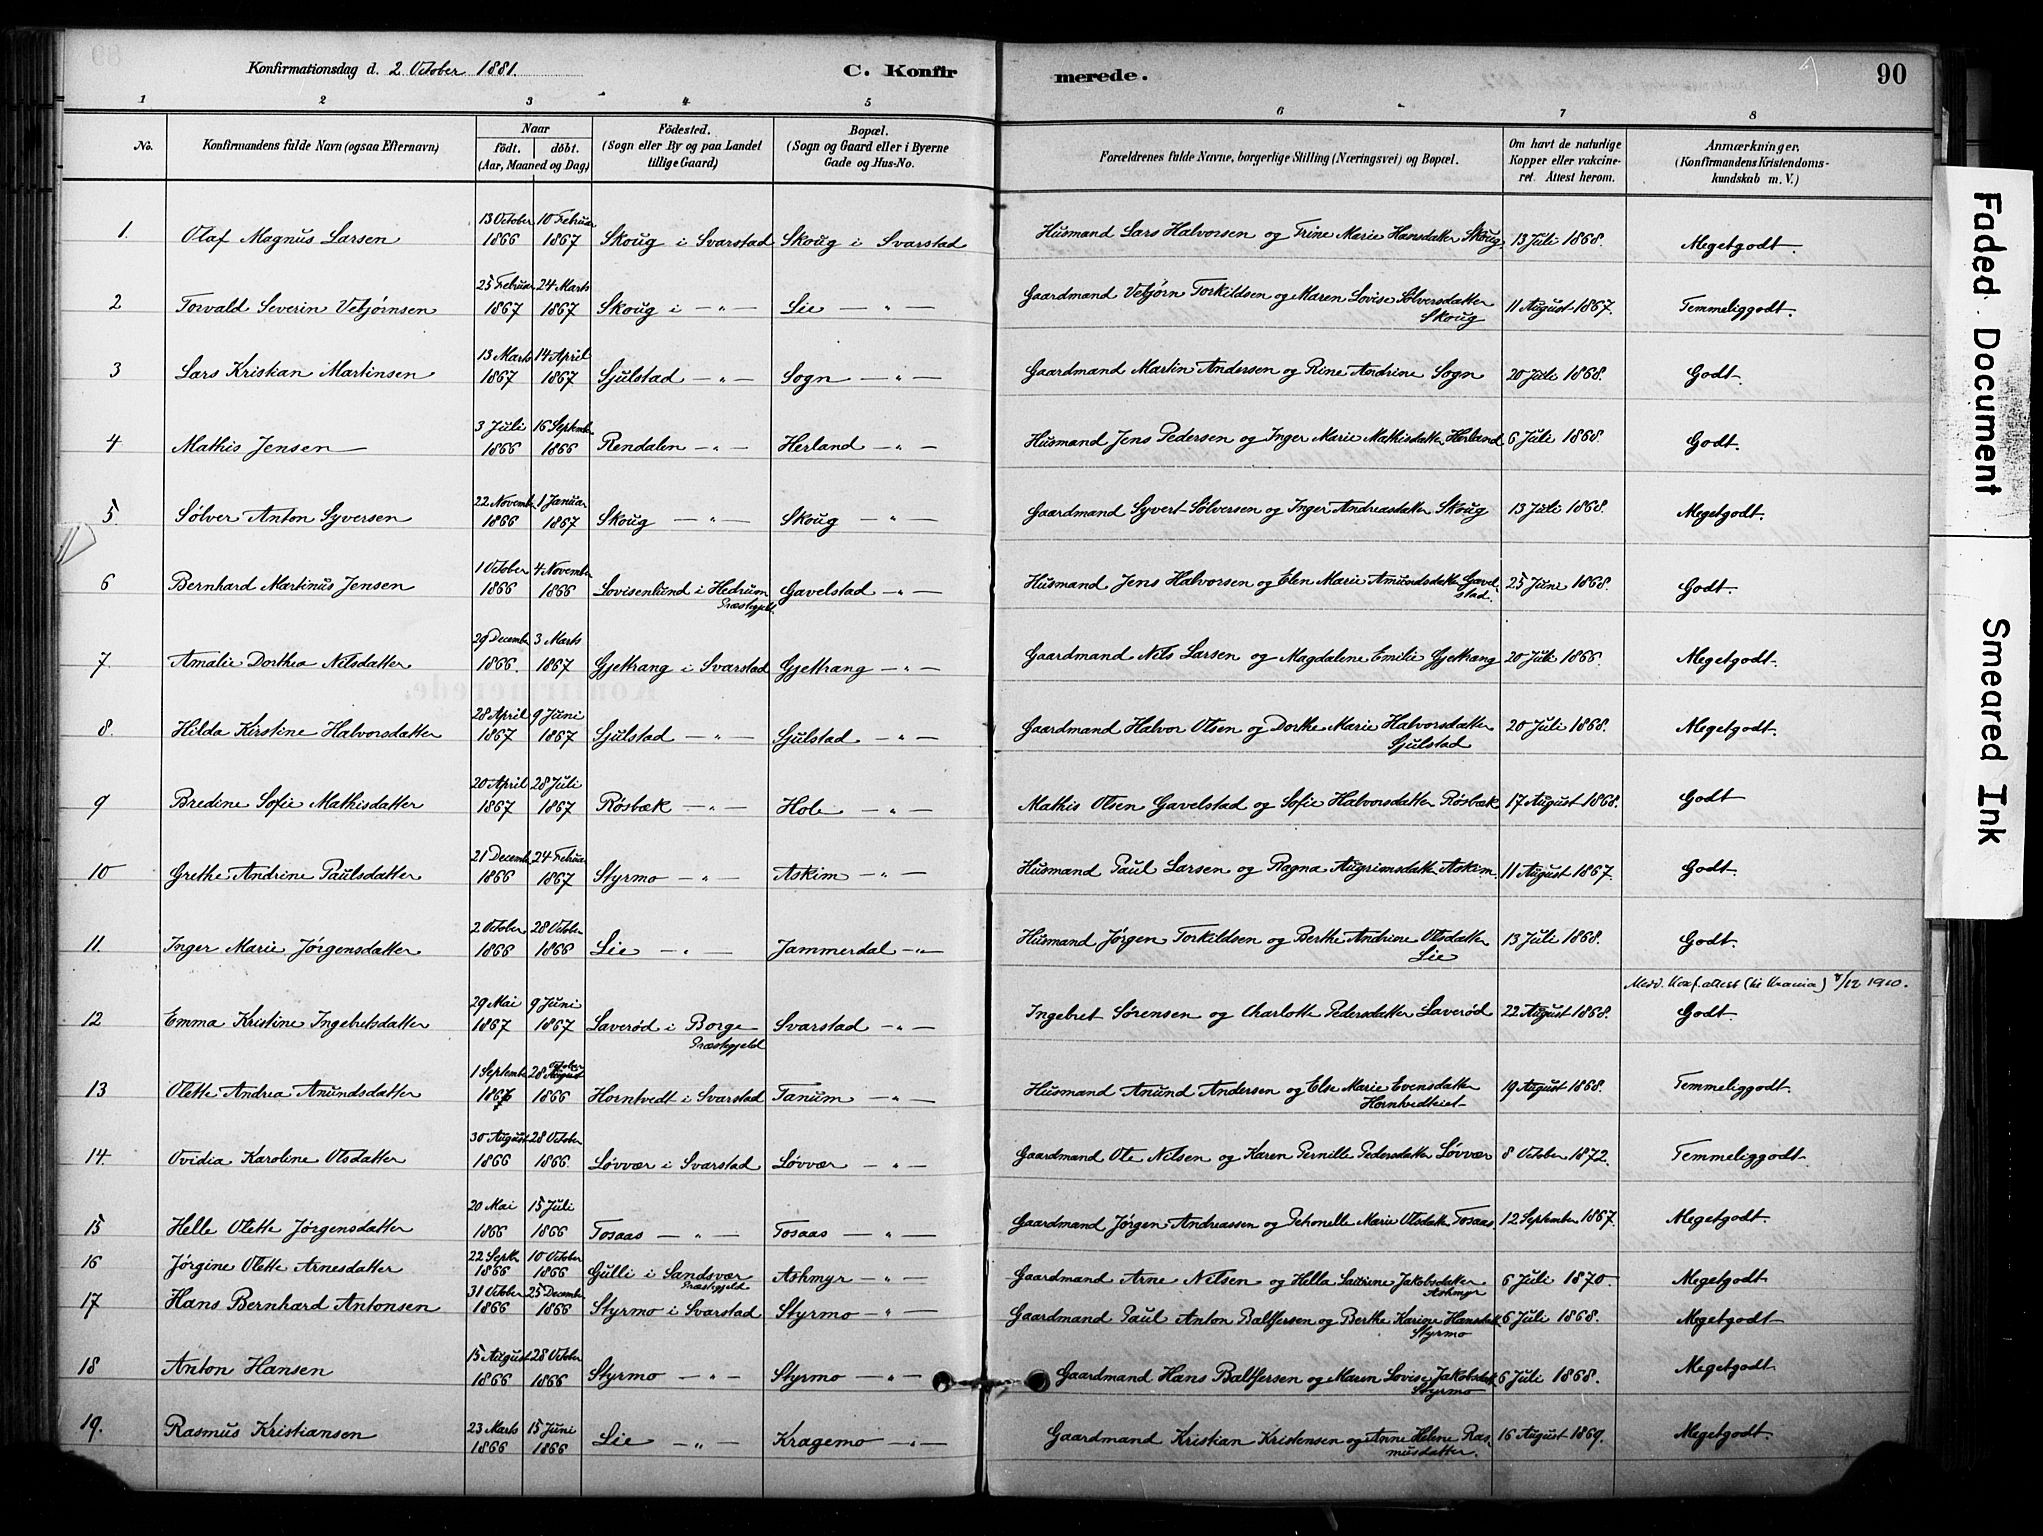 Konfirmationsdag d. 2 October 1881. C. Konfirmerede. 90
1 2 3 4 5 6 7 8
No. Konfirmandens fulde Navn (ogsaa Efternavn) Naar födt. döbt. (Aar, Maaned og Dag) Födested. (Sogn eller By og paa Landet tillige Gaard) Bopæl. (Sogn og Gaard eller i Byerne Gade og Hus-No. Forældrenes fulde Navne, borgerlige Stilling (Næringsvei) og Bopæl. Om havt de naturlige Kopper eller vakcineret. Attest herom. Anmærkninger. (Konfirmandens Kristendomskundskab m. V.)
1. Olaf Magnus Larsen 13 October 1866 10 Februar 1867 Skoug i Svarstad Skoug i Svarstad Husmand Lars Halvorsen og Trine Marie Hansdatter Skoug 13 Juli 1868. Megetgodt.
2 Torvald Severin Vebjørnsen 25 Februar 1867 24 Marts 1867 Skoug i —"— Lie —"— Gaardmand Vebjørn Torkildsen og Maren Lovise Sølversdatter Skoug 11 August 1867. Temmeliggodt.
3 Lars Kristian Martinsen 13 Marts 1867 14 April 1867 Sjulstad —"— Sogn —"— Gaardmand Martin Andersen og Rine Andrine Sogn 20 Juli 1868. Godt.
4 Mathis Jensen 3 Juli 1866 16 Septembr 1866 Rendalen —"— Herland —"— Husmand Jens Pedersen og Inger Marie Mathisdatter Herland 6 Juli 1868. Godt.
5 Sølver Anton Syversen 22 Novembr 1866 1 Januar 1867 Skoug —"— Skoug —"— Gaardmand Syvert Sølversen og Inger Andreasdatter Skoug 13 Juli 1868. Megetgodt.
6 Bernhard Martinus Jensen 1 October 1866 4 November 1866 Lovisenlund i Hedrum Præstegjeld. Gavelstad —"— Husmand Jens Halvorsen og Elen Marie Amundsdatter Gavelstad. 25 Juni 1868. Godt.
7. Amalie Dorthea Nilsdatter 29 Decembr 1866. 3 Marts 1867 Gjettrang i Svarstad Gjettrang —"— Gaardmand Nils Larsen og Magdalene Emilie Gjettrang 20 Juli 1866. Megetgodt.
8. Hilda Kirstine Halvorsdatter 28 April 1867 9 Juni 1867 Sjulstad —"— Sjulstad —"— Gaardmand Halvor Olsen og Dorthe Marie Halvorsdatter Sjulstad 20 Juli 1868. Megetgodt.
9 Bredine Sofie Mathisdatter 20 April 1867 28 Juli 1867 Røsbæk —"— Hole —"— Mathis Olsen Gavelstad og Sofie Halvorsdatter Røsbæk 17 August 1868. Godt
10 Grethe Andrine Paulsdatter 21 Decembr 1866 24 Februar 1867 Styrmo —"— Askim —"— Husmand Paul Larsen og Ragna Augrimsdatter Askim. 11 August 1867. Godt.
11. Inger Marie Jørgensdatter 2 October 1866 28 October 1866 Lie —"— Jammerdal —"— Husmand Jørgen Torkildsen og Berthe Andrine Olsdatter Lie 13 Juli 1868. Godt.
12 Emma Kristine Ingebretsdatter 29 Mai 1867 9 Juni 1867 Laverød i Borge Præstegjeld Svarstad —"— Ingebret Sørensen og Charlotte Pedersdatter Laverød 22 August 1868. 8/12 1910. Godt.
13 Olette Andrea Anundsdatter 1 Septembr 1867 28 August October 1866 Horntvedt i Svarstad Tanum —"— Husmand Anund Andersen og Else Marie Evensdatter Hornhvedteiet 19 August 1868. Temmeliggodt.
14. Ovidia Karoline Olsdatter 30 August 1866 28 October 1866. Løvvær i Svarstad Løvvær —"— Gaardmand Ole Nilsen og Karen Pernille Pedersdatter Løvvær 8 October 1872. Temmeliggodt.
15 Helle Olette Jørgensdatter 20 Mai 1866 15 Juli 1866 Tosaas —"— Tosaas —"— Gaardmand Jørgen Andreassen og Pehonelle Marie Olsdatter Tosaas 12 September 1867. Megetgodt.
16 Jørgine Olette Arnesdatter 22 Septbr 1866 10 October 1866 Gulli i Sandsvær Præstegjeld Ashmyr —"— Gaardmand Arne Nilsen og Hella Jakobsdatter Ashmyr 6 Juli 1870. Megetgodt
17 Hans Bernhard Antonsen 31 October 1866 25 Decembr 1866 Styrmo i Svarstad Styrmo —"— Gaardmand Paul Anton Baltsersen og Berthe Karine Hansdatt Styrmo 6 Juli 1868. Megetgodt
18 Anton Hansen 15 August 1866 28 October 1866 Styrmo —"— Styrmo —"— Gaardmand Hans Baltsersen og Maren Lovise Jakobsdatt Styrmo 6 Juli 1868. Megetgodt
19. Rasmus Kristiansen 23 Marts 1866 15 Juni 1866 Lie —"— Kragemo —"— Gaardmand Kristian Kristensen og Anne Helene Rasmusdatter. 16 August 1869. Megetgodt.
Faded Document
Smeared Ink